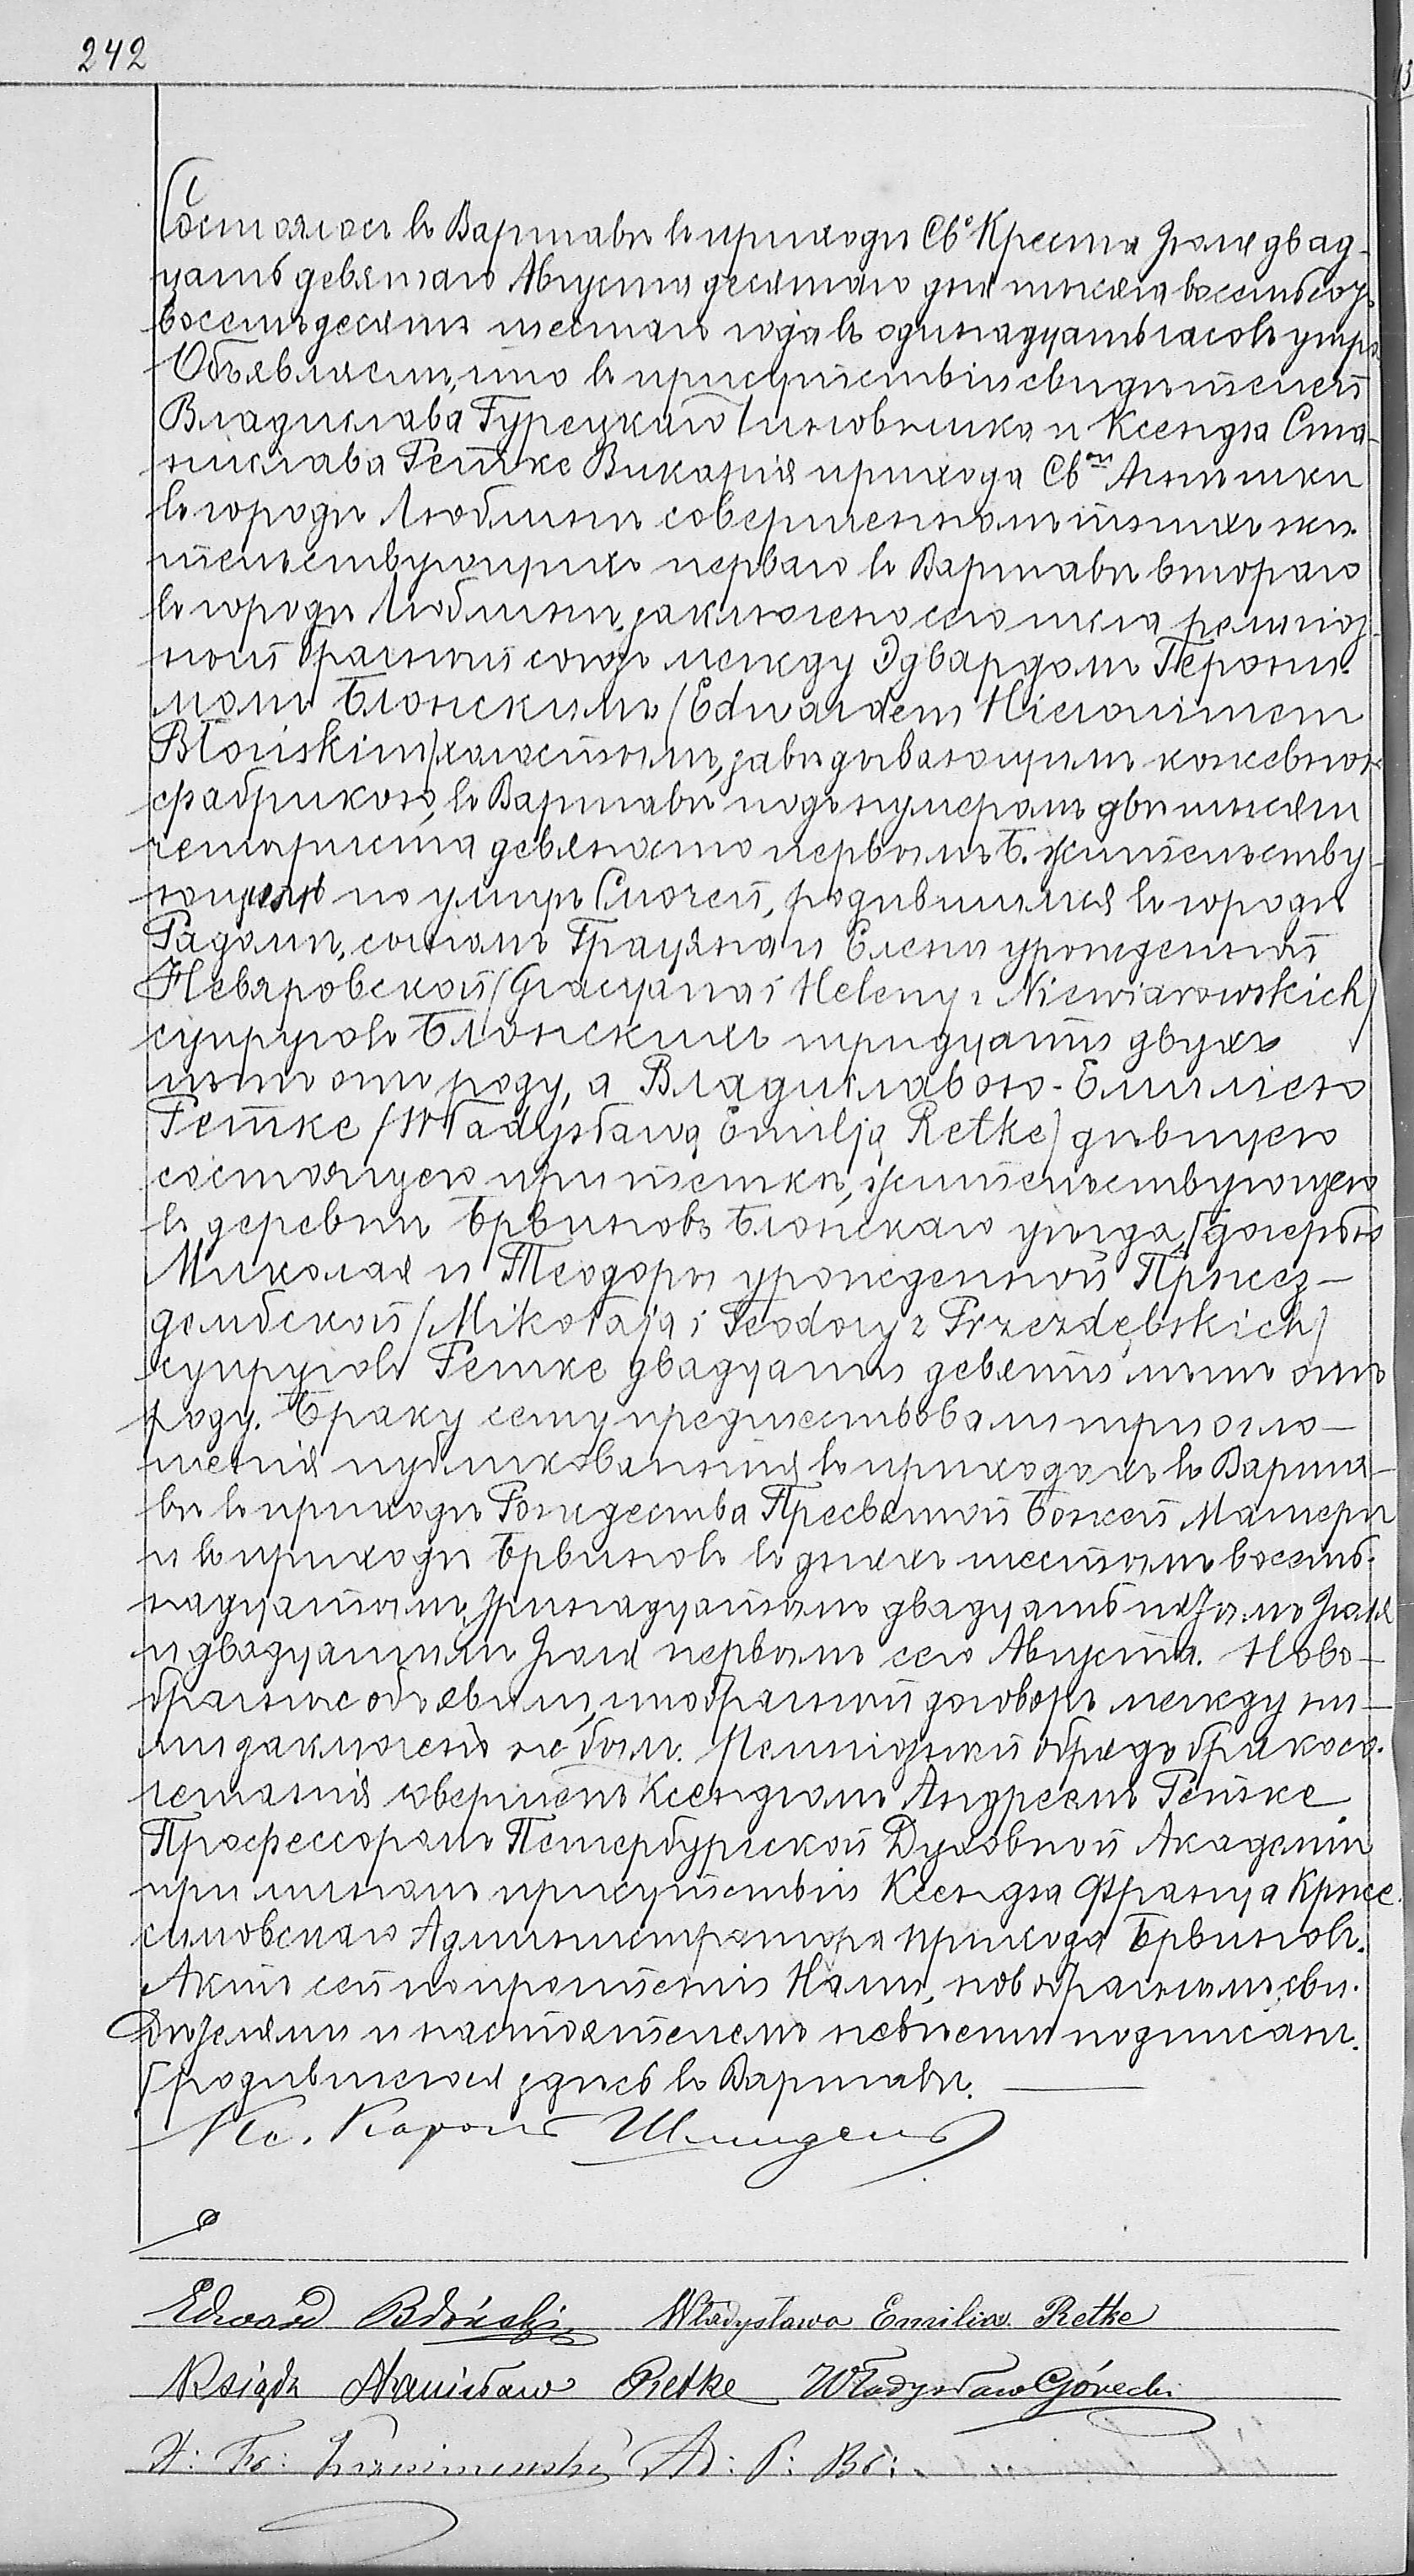 242
Состоялось въ Варшавѣ въ приходѣ Св. Креста Іюля двад-
цать девятаго Августа десятаго дня тысяча восемьсотъ
восемьдесятъ шестаго года въ одинадцать часовъ утра.
Объявляемъ, что въ присутствіи свидѣтелей
Владислава Гурецкаго Чиновника и Ксендза Ста-
нислава Ретке Викарія прихода Св.ой Агнешки
въ городѣ Люблинѣ совершеннолѣтнихъ жи-
тельствующихъ перваго въ Варшавѣ втораго
въ городѣ Люблинѣ, заключено сего числа религіоз-
ный брачный союзъ между Эдвардомъ Герони-
момъ Блонскимъ (Edwardem Hieronimem
Błońskim) холостымъ, завѣдывающимъ кожевною
фабрикою, въ Варшавѣ подъ нумеромъ двѣ тысячи
четыриста девяносто первымъ Б. жительству-
ющимъ по улицѣ Смочей, родившимся въ городѣ
Радомѣ, сыномъ Граціяна и Елены урожденной
Невяровской (Gracyana i Heleny z Niewiarowskich)
супруговъ Блонскихъ тридцати двухъ
лѣтъ отъ роду, а Владиславою-Емиліею
Ретке (Władysławą Emilją Retke) дѣвицею
состоящею при теткѣ, жительствующею
въ деревнѣ Брвиновъ Блонскаго уѣзда, дочерью
Миколая и Теодоры урожденной Пржез-
дембской (Mikołaja i Teodory z Przezdębskich)
супруговъ Ретке двадцати девяти лѣтъ отъ
роду. Браку сему предшествовали три огло-
шенія публикованныя въ приходахъ въ Варша-
вѣ въ приходѣ Рождества Пресвятой Божей Матери
и въ приходѣ Брвиновъ въ дняхъ шестомъ восемь-
надцатомъ, тринадцатомъ двадцать пятомъ Іюля
и двадцатомъ Іюля первомъ сего Августа. Ново-
брачные объявили, что брачный договоръ между ни-
ми заключенъ не былъ. Религіозный обрядъ бракосо-
четанія совершенъ Ксендзомъ Андреемъ Ретке
Профессоромъ Петербургской Духовной Академіи
при личномъ присутствіи Ксендза Франца Крже-
симовскаго Администратора прихода Брвиновъ.
Актъ сей по прочтеніи Нами, новобрачными, сви-
дѣтелями и настоятелемъ невѣсты подписанъ.
(родившеюся здѣсь въ Варшавѣ.
Кс. Кароль Шмидель
Edward Błoński Władysława Emilia Retke
Ksiądz Stanisław Retke Władysław Górecki
X: Fr: Krzesimowski Ad: P: Br: